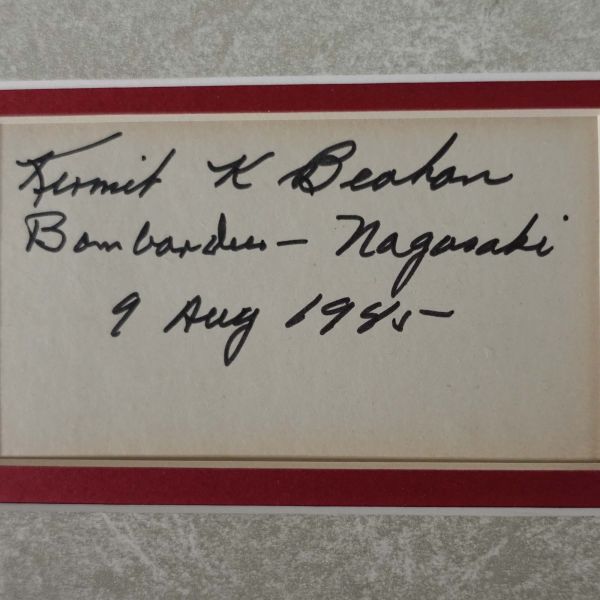 Kermit K Beahan
Bombardier – Nagasaki
9 Aug 1945